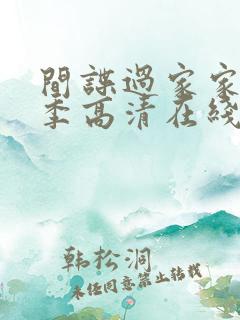 間諜過家家
季高清在綫
韩松洞
未经同意禁止转载